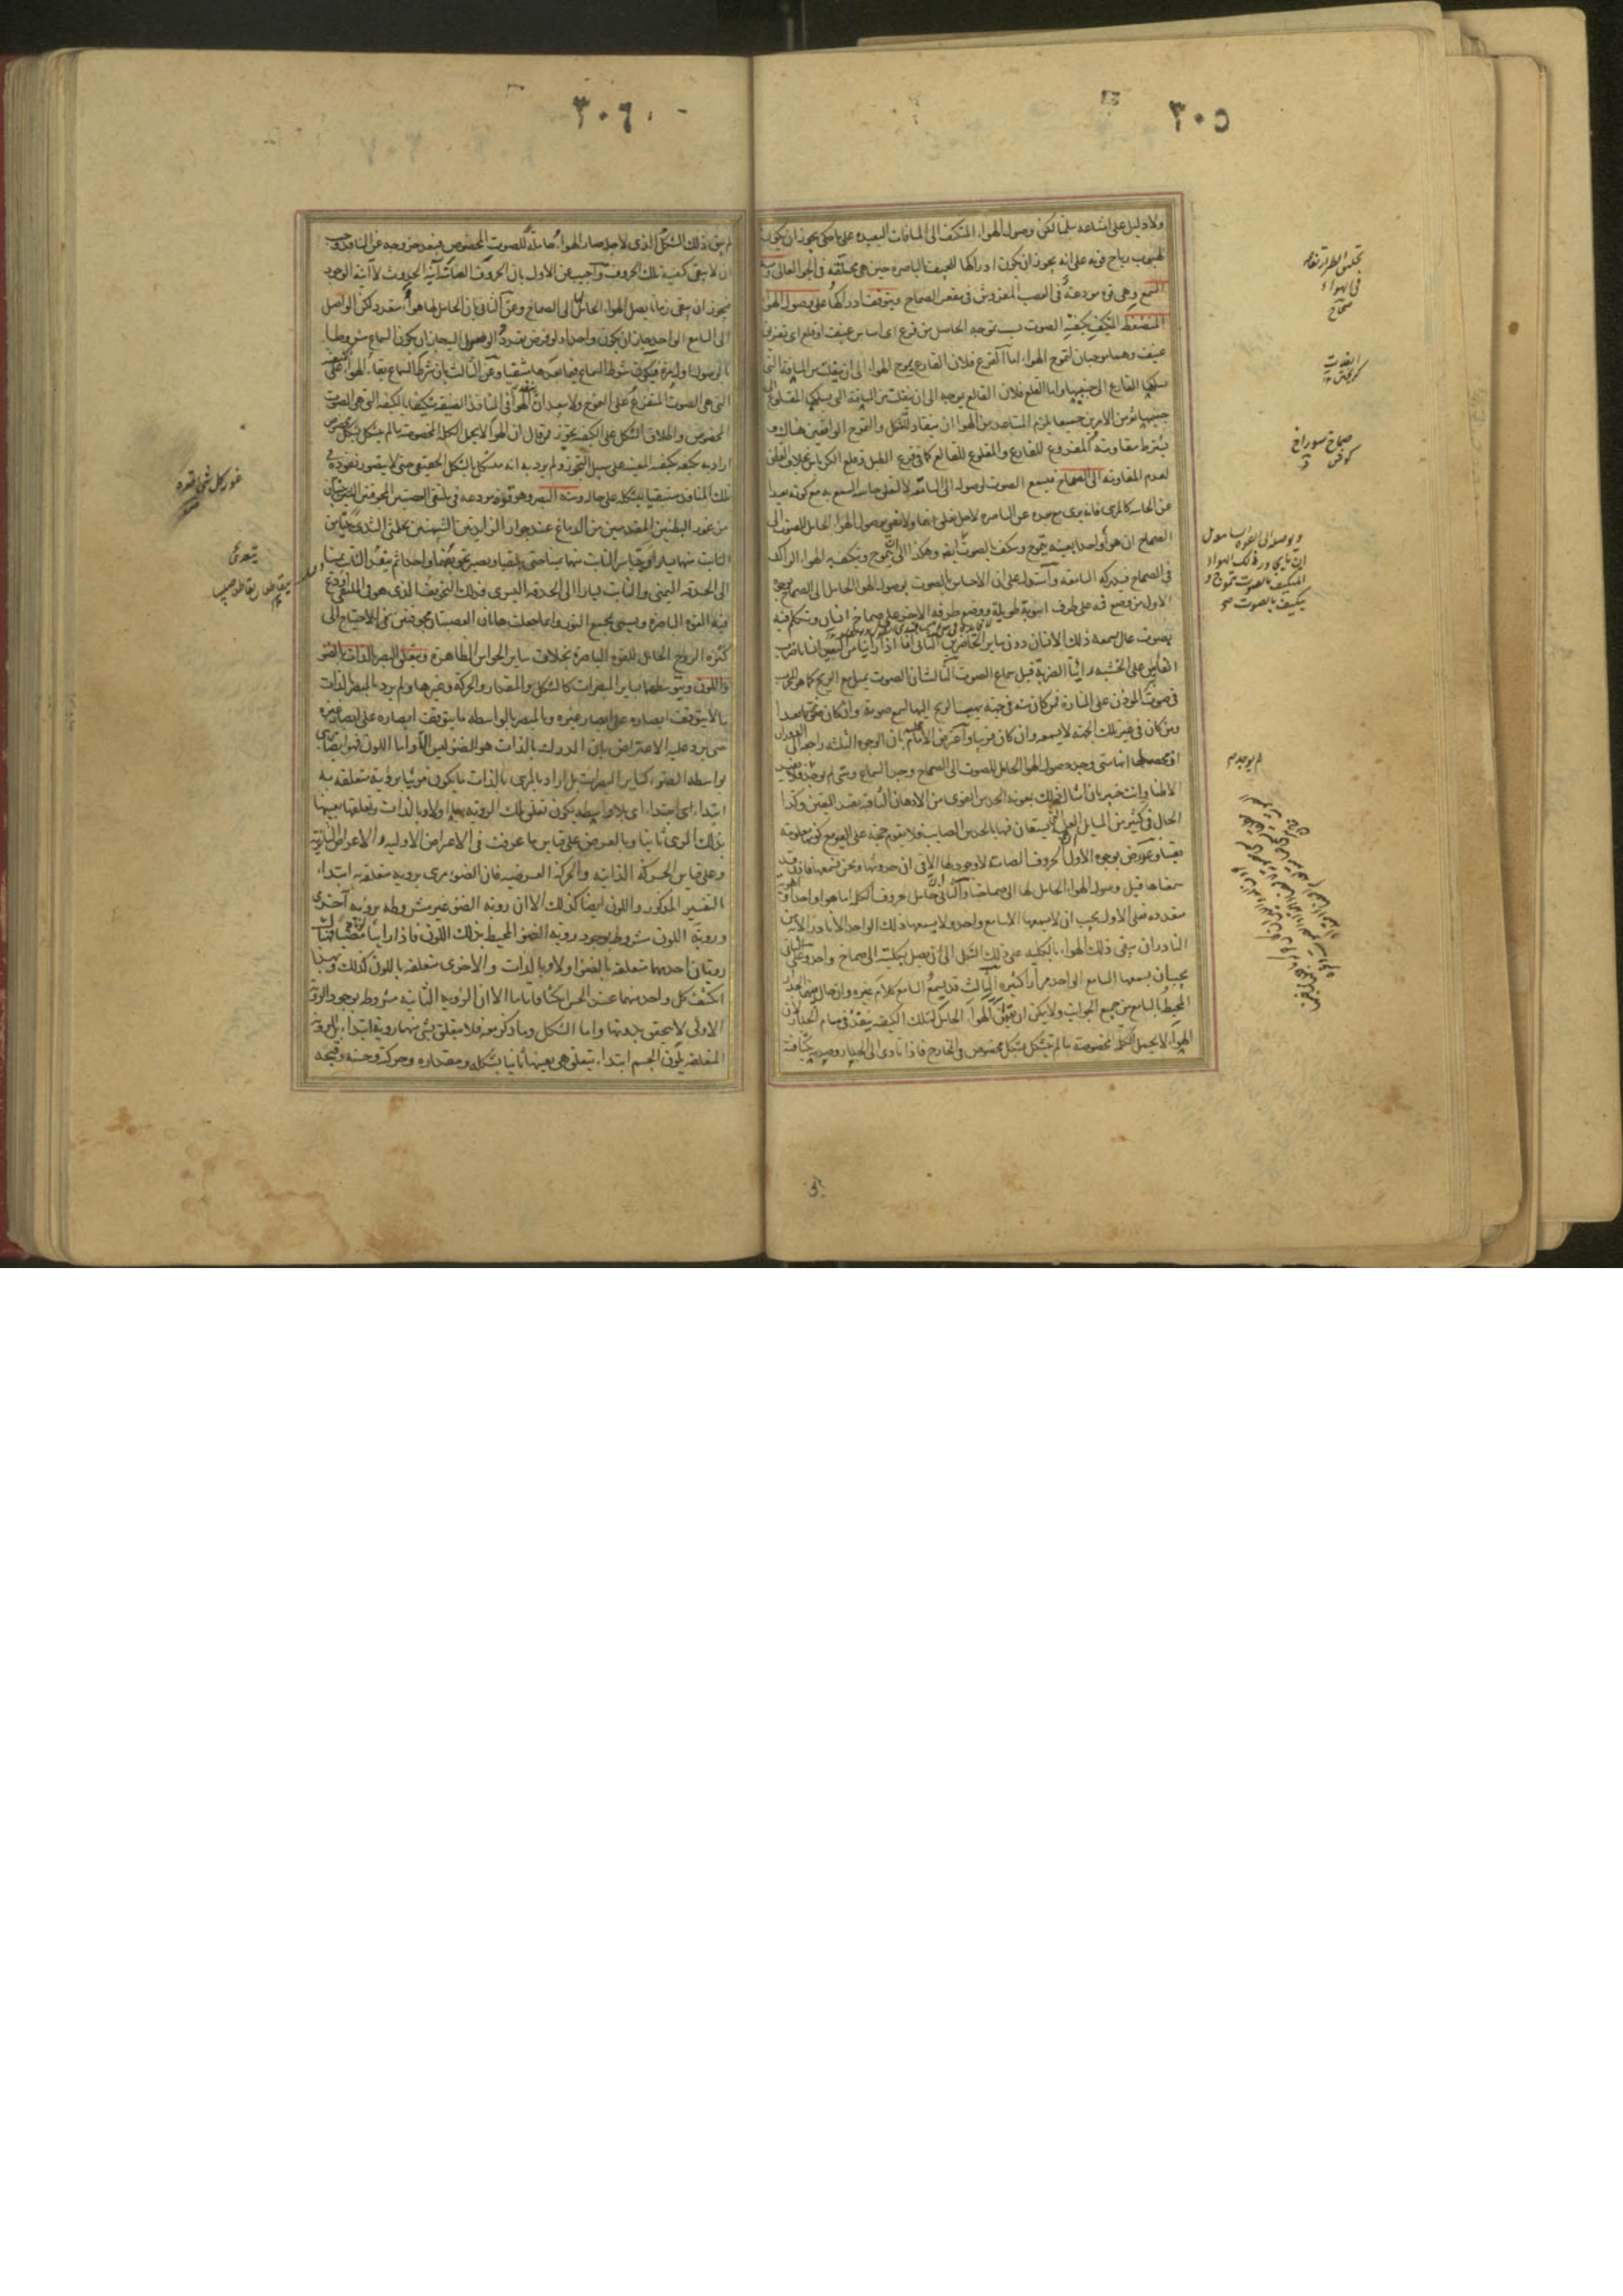 ٣٠٥
ولا دليل على امتناعه سلمنا لكن وصول الهواء المتكيف الى المسافات البعيدة على ما حكى يجوز ان يكون
لهبوب رياح قوية على انه يجوز ان يكون ادراكها للجيف بالباصرة حين هي محلقة في الجو العالي ومنه
السمع وهي قوة مودعة في العصب المفروش في مقعر الصماخ ويتوقف ادراكها على وصول الهواء
المنضغط المتكيف بكيفية الصوت بسبب تموجه الحاصل من قرع اى امساس عنيف او قلع اى تفريق
عنيف وهما موجبان لتموج الهواء اما القرع فلان القارع يموج الهواء الى ان ينقلب من المسافة التى
يسلكها القارع الى جنبيها واما القلع فلان القالع يموجه الى ان ينقلب من المسافة التى يسلكها المقلوع الى
جنبيها ثم من الامرين جميعا يلزم المتباعد من الهواء ان ينقاد للتشكل والتموج الواقعين هناك و
يشترط مقاومة المقروع للقارع والمقلوع للقالع كما في قرع الطبل وقلع الكرباس بخلاف القطن
لعدم المقاومة الى الصماخ فيسمع الصوت لوصوله الى السامعة لا لتعلق حاسة السمع به مع كونه بعيدا
عن الحاسة كالمرئى فانه يرى مع بعده عن الباصرة لاجل تعلق بها ولا نعنى بوصول الهواء الحامل للصوت الى
الصماخ ان هواء واحدا بعينه يتموج ويتكيف بالصوت
في الصماخ فيدركه السامعة واستدل على ان الاحساس بالصوت بوصول الهواء الحامل الى الصماخ بوجوه
الاول من وضع فمه على طرف انبوبة طويلة ووضع طرفه الاخر على صماخ انسان وتكلم فيه
بصوت عال سمعه ذلك الانسان دون ساير الحاضرين الثانى انا اذا راينا من البعيد انسانا يضرب
الفأس على الخشبة راينا الضربة قبل سماع الصوت الثالث ان الصوت يميل مع الريح كما هو المجرب
في صوت المؤذن على المنارة فمن كان منه في جهة يهب الريح اليها يسمع صوته وان كان بعيدا
ومن كان في غير تلك الجهة لا يسمعه وان كان قريبا واعترض الامام بان الوجوه الثلثة راجعة الى الدوران
اذ محصلها انه متى وجد وصول الهواء الحامل للصوت الى الصماخ وجد السماع ومتى لم يوجد
الا الظن وانت خبير بان امثال ذلك بمعونة الحدس القوى من الاذهان الثاقبة يفيد اليقين وكذا
الحال في كثير من المسائل العلمية يستعان فيها بالحدس الصايب فلا يقوم حجة على الغير مع كونها معلومة
يقينا وعورض بوجوه الاول الحروف الصامتة لا وجود لها الا في ان حدوثها ونحن نسمعها فاذن قد
سمعناها قبل وصول الهواء الحامل لها الى صماخنا والثانى ان حامل حروف الكلمة اما هواء واحد او
متعددة فعلى الاول يجب ان لا يسمعها الا سامع واحد ولا يسمعها ذلك الواحد الا نادرا لان من
النادر ان يبقى ذلك الهواء بالكلية على ذلك الشكل الى ان يصل بكليته الى صماخ واحد وعلى الثانى
يجب ان يسمعها السامع الواحد مرارا كثيرة الثالث قد يسمع السامع كلام غيره وان حال بينهما جدار
المحيط بالسامع من جميع الجوانب ولا يمكن ان يقال الهواء الحامل لتلك الكيفية ينفذ في مسام الجدار لان
الهواء لا يحمل الكلمة المخصوصة ما لم يتشكل بشكل مخصوص في الخارج فاذا تادى الى الجدار وصدمه بكثافته
صماخ سوراخ
كوش
لم يوجد
٣٠٦
لم يبق ذلك الشكل الذى لاجله صار الهواء حاملا للصوت المخصوص فبعد خروجه عن المنافذ وجب
ان لا يبقى كيفية تلك الحروف واجيب عن الاول بان الحروف الصامتة آنية الحدوث لا آنية الوجود
فيجوز ان يبقى زمانا يصل الهواء الحامل لها الى الصماخ وعن الثانى بان الحامل لها هواء متعدد لكن الواصل
الى السامع الواحد جاز ان يكون واحدا ولو فرض تعدد الوصول اليه جاز ان يكون السماع مشروطا
بالوصول اول مرة فيكون شرط السماع فيما بعدها منتفيا وعن الثالث بان شرط السماع بقاء الهواء على كيفيته
التى هى الصوت المتفرع على التموج ولا يبعد ان الهواء في المنافذ الضيقة متكيفا بالكيفية التى هى الصوت
المخصوص واطلاق الشكل على الكيفية تجوز فمن قال ان الهواء لا يحمل الكلمة المخصوصة ما لم يتشكل بشكل مخصوص
اراد به تكيفه بكيفية معينة على سبيل التجوز ولم يرد به انه متشكل بالشكل الحقيقى حتى لا يتصور نفوذه في
تلك المنافذ مستبقيا لشكله على حاله ومنه البصر وهو قوة مودعة في ملتقى العصبتين المجوفتين اللتين تنبتان
من غور البطنين المقدمين من الدماغ عند جوار الزايدتين الشبيهتين بحلمتى الثدى يتيامن
النابت منهما يسارا ويتياسر النابت منهما يمينا حتى يلتقيا ويصير تجويفهما واحدا ثم ينفذ النابت يمينا
الى الحدقة اليمنى والنابت يسارا الى الحدقة اليسرى فذلك التجويف الذى هو في الملتقى اودع
فيه القوة الباصرة ويسمى بمجمع النور وانما جعلت هاتان العصبتان مجوفتين للاحتياج الى
كثرة الروح الحامل للقوة الباصرة بخلاف ساير الحواس الظاهرة ويتعلق البصر بالذات بالضوء
واللون وبتوسطهما بساير المبصرات كالشكل والمقدار والحركة وغيرها ولم يرد بالمبصر بالذات
ما لا يتوقف ابصاره على ابصار غيره وبالمبصر بالواسطة ما يتوقف ابصاره على ابصار غيره
حتى يرد عليه الاعتراض بان المدرك بالذات هو الضوء ليس الا واما اللون فهو ايضا يرى
بواسطة الضوء كساير المبصرات بل اراد بالمرئى بالذات ما يكون مرئيا برؤية متعلقة به
ابتداء اى بلا واسطة يكون تعلق تلك الرؤية بها اولا وبالذات وتعلقها بعينها
بذلك المرئى ثانيا وبالعرض على قياس ما عرفت في الاعراض الاولية والاعراض الثانوية
وعلى قياس الحركة الذاتية والحركة العرضية فان الضوء مرئى برؤية متعلقة به ابتداء
بالتفسير المذكور واللون ايضا كذلك الا ان رؤية الضوء غير مشروطة برؤية اخرى
ورؤية اللون مشروط بوجود رؤية الضوء المحيط بذلك اللون فاذا راينا
رؤيتان احدهما متعلقة بالضوء اولا وبالذات والاخرى متعلقة باللون كذلك وبهذا
انكشف كل واحد منهما عند الحس انكشافا تاما الا ان الرؤية الثانية مشروط بوجود الرؤية
الاولى لا يتحقق بدونها واما الشكل وما ذكر معه فلا يتعلق بشئ منها رؤية ابتداء بل الرؤية
المتعلقة بلون الجسم ابتداء يتعلق هى بعينها ثانيا بشكله ومقداره وحركته وحسنه وقبحه
غور كل شئ قعره